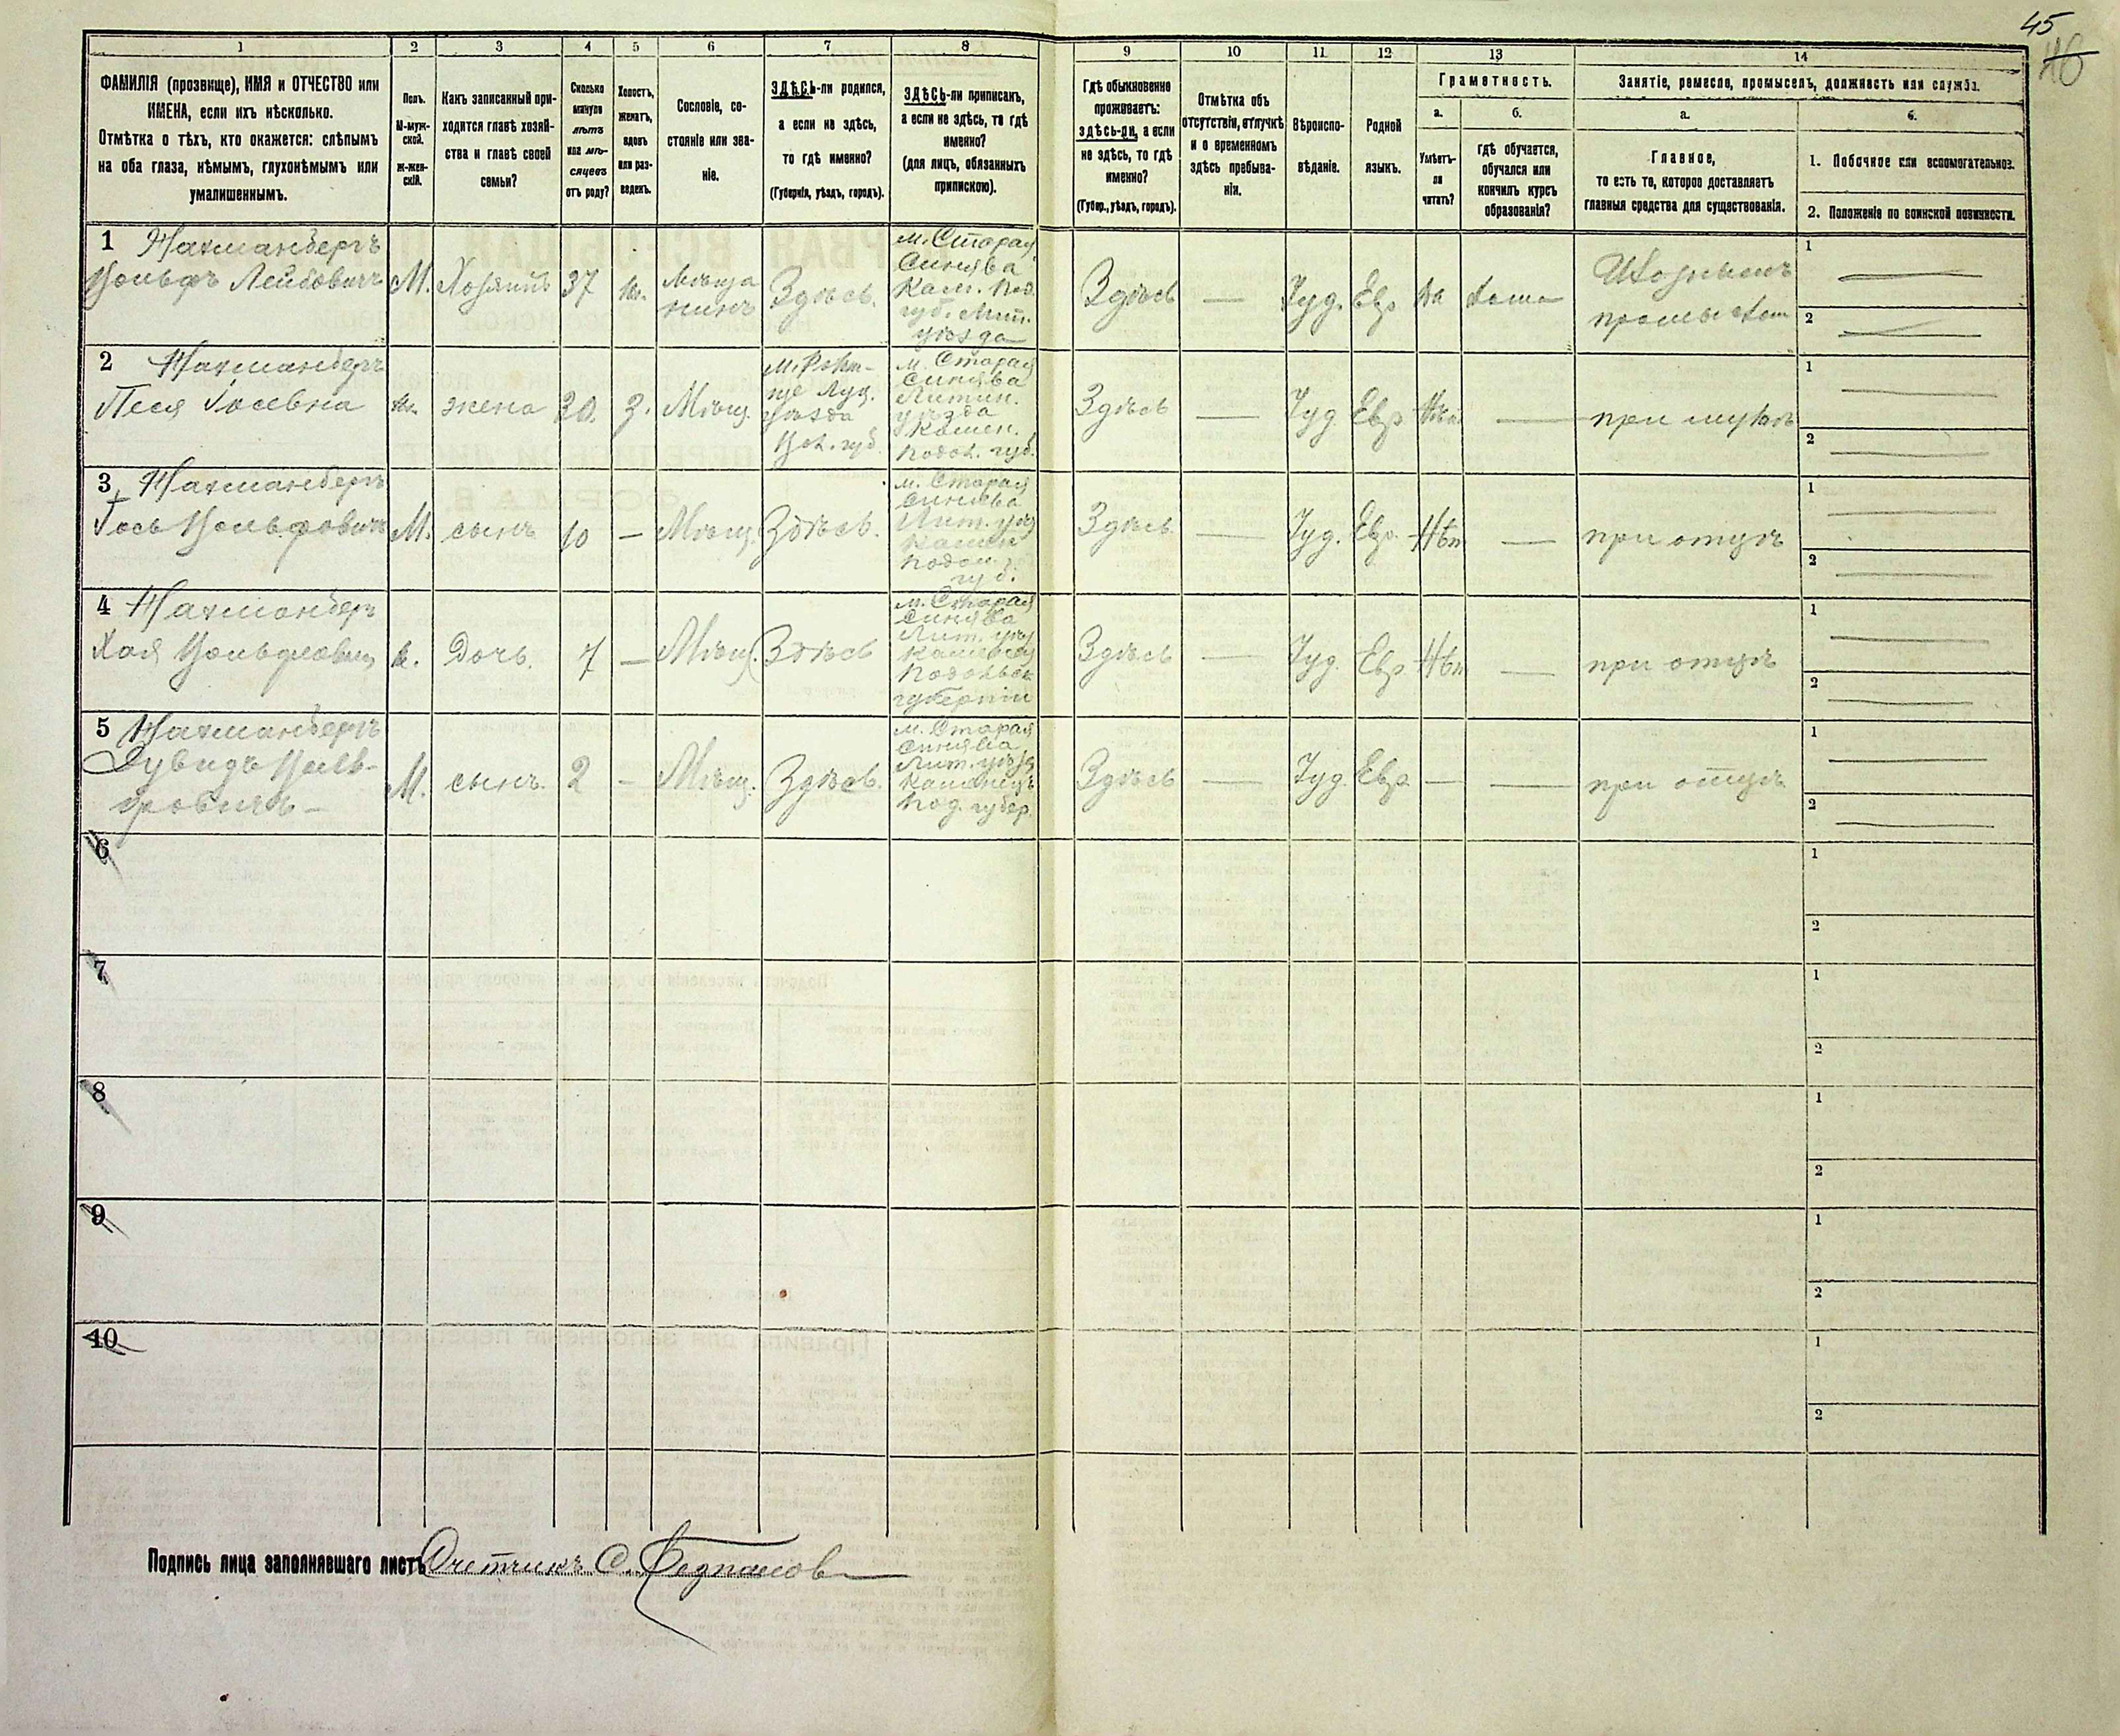 45
46
1 2 3 4 5 6 7 8 9 10 11 12 13 14
ФАМИЛІЯ (прозвище), ИМЯ и ОТЧЕСТВО или
ИМЕНА, если ихъ нѣсколько.
Отмѣтка о тѣхъ, кто окажется: слѣпымъ
на оба глаза, нѣмымъ, глухонѣмымъ или
умалишеннымъ.
Полъ.
М-муж-
ской.
Ж-жен-
скій.
Какъ записанный при-
ходится главѣ хозяй-
ства и главѣ своей
семьи?
Сколько
минуло
лѣтъ
или мѣ-
сяцевъ
отъ роду?
Холостъ,
женатъ,
вдовъ
или раз-
веденъ.
Сословіе, со-
стояніе или зва-
ніе.
ЗДѢСЬ-ли родился,
а если не здѣсь,
то гдѣ именно?
(Губернія, уѣздъ, городъ).
ЗДѢСЬ-ли приписанъ,
а если не здѣсь, то гдѣ
именно?
(для лицъ, обязанныхъ
припискою).
Гдѣ обыкновенно
проживаетъ:
здѣсь-ли, а если
не здѣсь, то гдѣ
именно?
(Губер., уѣздъ, городъ).
Отмѣтка объ
отсутствіи, отлучкѣ
и о временномъ
здѣсь пребыва-
ніи.
Вѣроиспо-
вѣданіе.
Родной
языкъ.
Грамотность.
а.
Умѣетъ-
ли
читать?
б.
гдѣ обучается,
обучался или
кончилъ курсъ
образованія?
Занятіе, ремесло, промыселъ, должность или служба.
а.
Главное,
то есть то, которое доставляетъ
главныя средства для существованія.
б.
1. Побочное или вспомогательное.
2. Положеніе по воинской повинности.
1 Нахманбергъ
Вольфъ Лейбовичъ
М. Хозяинъ 37 ж. Мѣща
нинъ
Здѣсь.
м. Старая
Синява
Кам. Под.
губ. Лит.
уѣзда
Здѣсь — Іуд. Евр да дома
1
2
2 Нахманбергъ
Песя Іосевна
ж. жена 30. З. Мѣщ.
Луц.
уѣзда
Вол. губ.
м. Старая
Синява
Литин.
уѣзда
Камен.
Подол. губ.
Здѣсь — Іуд Евр Нѣт — при мужѣ
1
2
3 Нахманбергъ
Іось Вольфовичъ
М. сынъ 10 — Мѣщ. Здѣсь.
м. Старая
Синява
Лит. уѣз
Камен
Подол.
губ.
Здѣсь — Іуд. Евр. Нѣт — при отцѣ
1
2
4 Нахманбергъ
Хая
ж. Дочь. 7 — Мѣщ. Здѣсь
м. Старая
Синява
Лит. уѣз
Подольск
губерніи
Здѣсь — Іуд. Евр Нѣт — при отцѣ
1
2
5 Нахманбергъ
Дувидъ Воль-
фовичъ —
М. сынъ. 2 — Мѣщ. Здѣсь.
м. Старая
Синява
Лит. уѣзд
Каменецъ
Под. губер.
Здѣсь — Іуд. Евр. — — при отцѣ
1
2
6
1
2
7
1
2
8
1
2
9
1
2
10
1
2
Подпись лица заполнявшаго листъ Счетчикъ С.